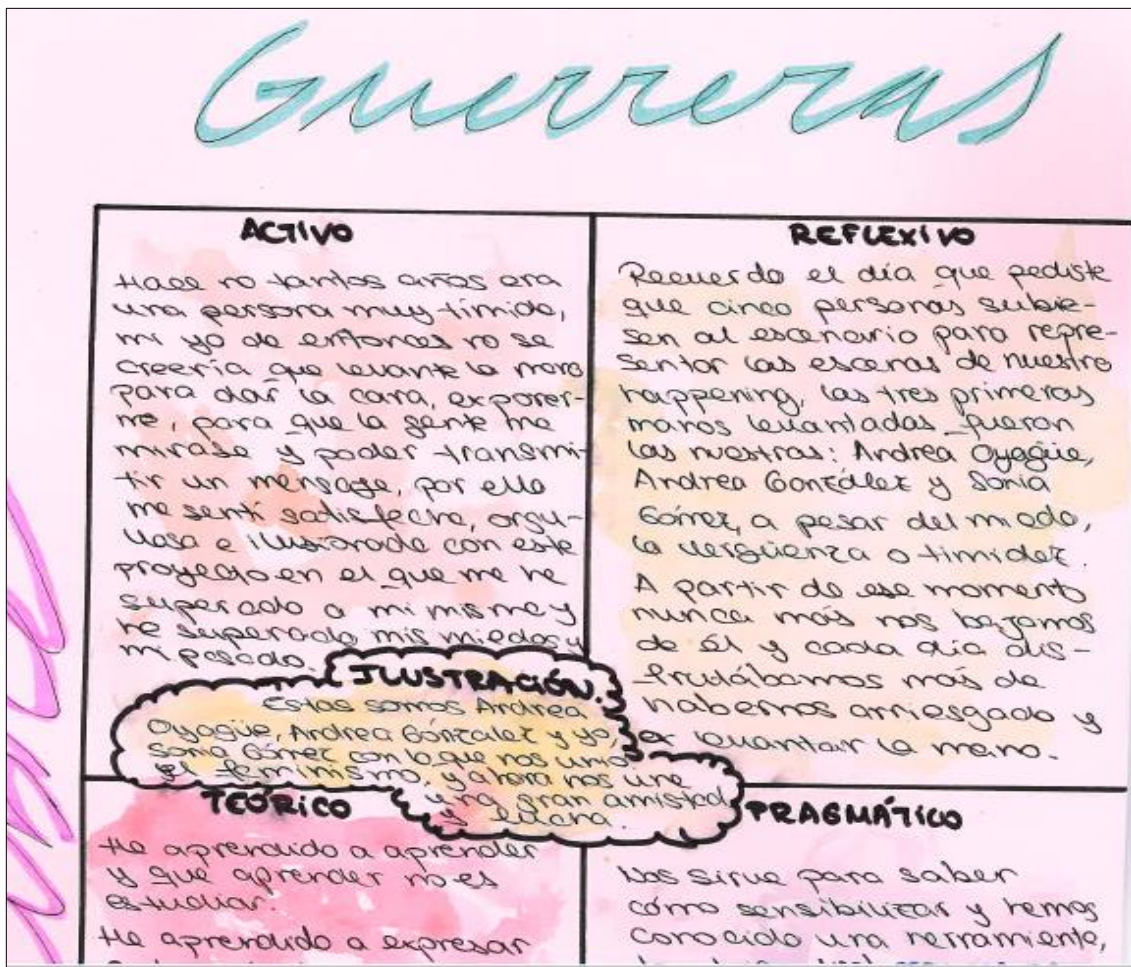 Guerreras
ACTIVO
Hace no tantos años era
una persona muy tímida,
mi yo de entonces no se
creería que levante la mano
para dar la cara, exponer-
me, para que la gente me
mirase y poder transmi-
tir un mensaje, por ello
me sentí satisfecha, orgu-
llosa e ilusionada con este
proyecto en el que me he
superado a mi misma y
he superado mis miedos y
mi pasado.
REFLEXIVO
Recuerdo el día que pediste
que cinco personas subie-
sen al escenario para repre-
sentar las escenas de nuestro
happening, las tres primeras
manos levantadas fueron
las nuestras: Andrea Oyagüe,
Andrea González y Sonia
Gómez, a pesar del miedo,
la vergüenza o timidez.
A partir de ese momento
nunca más nos bajamos
de él y cada día dis-
frutábamos más de
habernos arriesgado y
levantar la mano.
ILUSTRACIÓN.
Estas somos Andrea
Oyagüe, Andrea González y yo,
Sonia Gómez con lo que nos unió
el feminismo, y ahora nos une
una gran amistad
y lucha.
TEÓRICO
He aprendido a aprender
y que aprender no es
estudiar.
He aprendido a expresar
PRAGMÁTICO
Nos sirve para saber
cómo sensibilizar y hemos
conocido una herramienta,